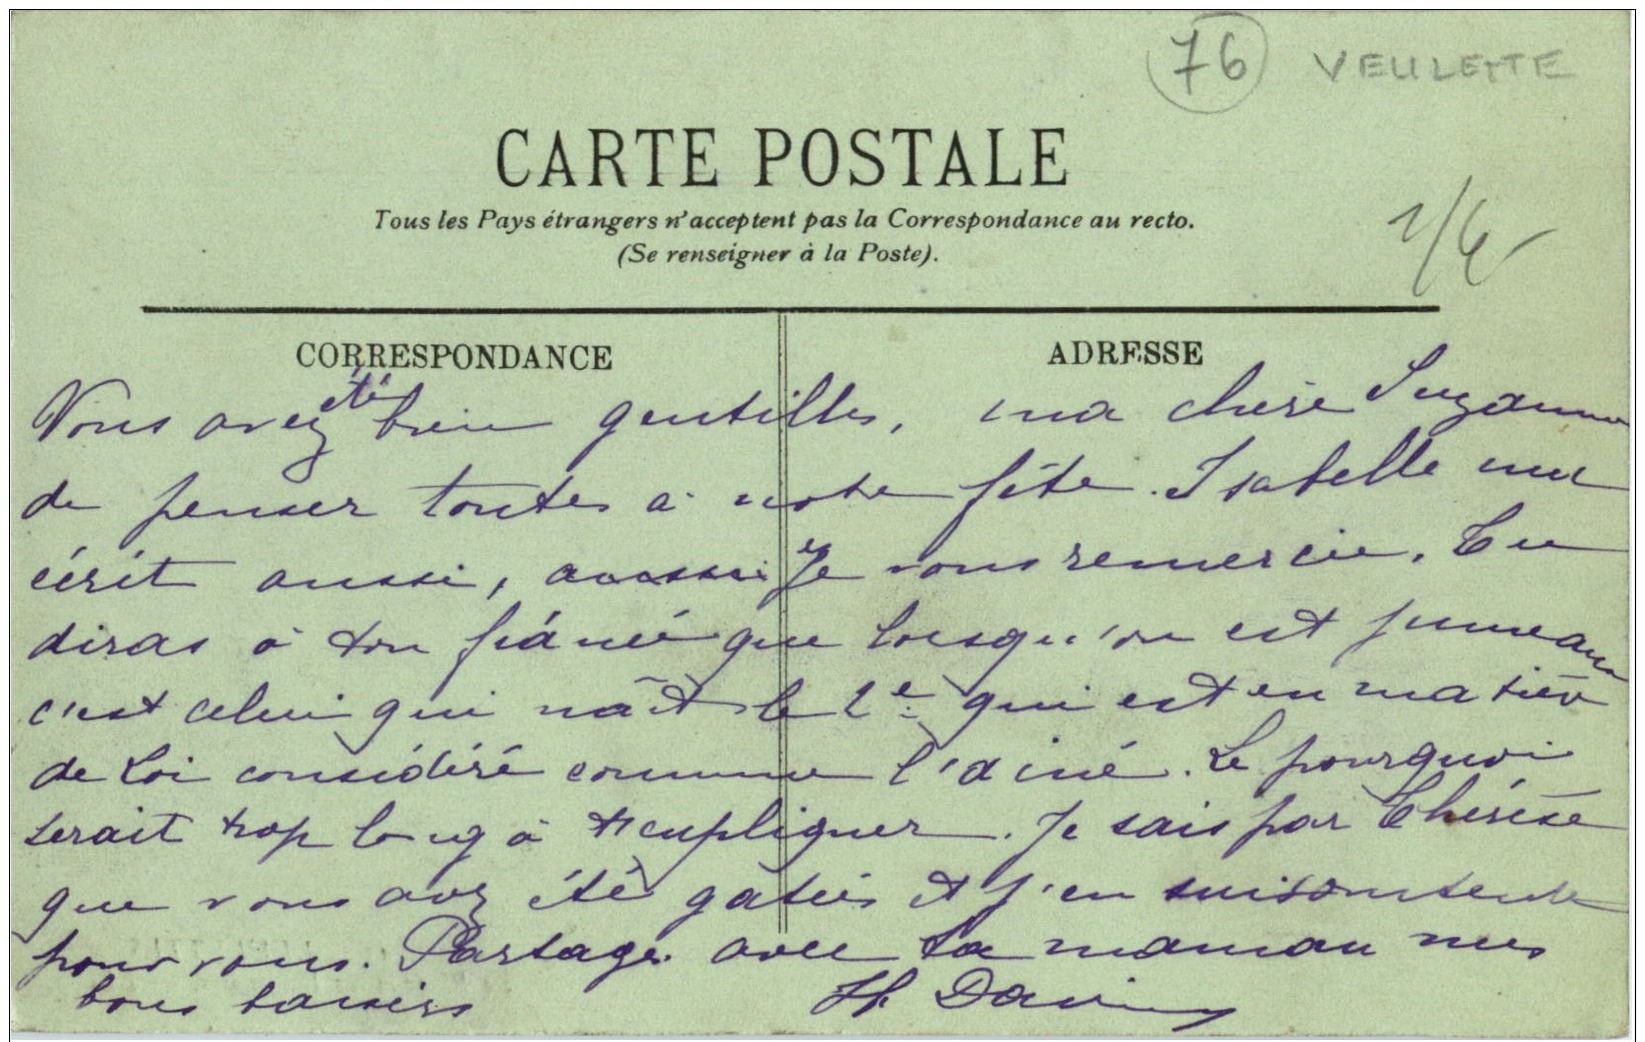 76 VEULETTE
CARTE POSTALE
Tous les Pays étrangers n'acceptent pas la Correspondance au recto.
(Se renseigner à la Poste).
CORRESPONDANCE
ADRESSE
Vous avez été bien gentilles, ma chère Suzanne
de penser toutes à notre fête. Isabelle me
écrit aussi, aussi Je vous remercie. Tu
diras à ton fiancé que lorsqu'on est jumeaux
c'est celui qui naît le 2e qui est en matière
de loi considéré comme l'aîné. Le pourquoi
serait trop long à expliquer. Je sais par Thérèse
que vous avez été gatées et j'en suis contente
pour vous. Partage avec ta maman mes
bons baisers